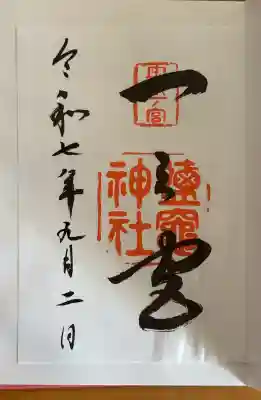 一之宮
鹽竈
神社
令和七年九月二日